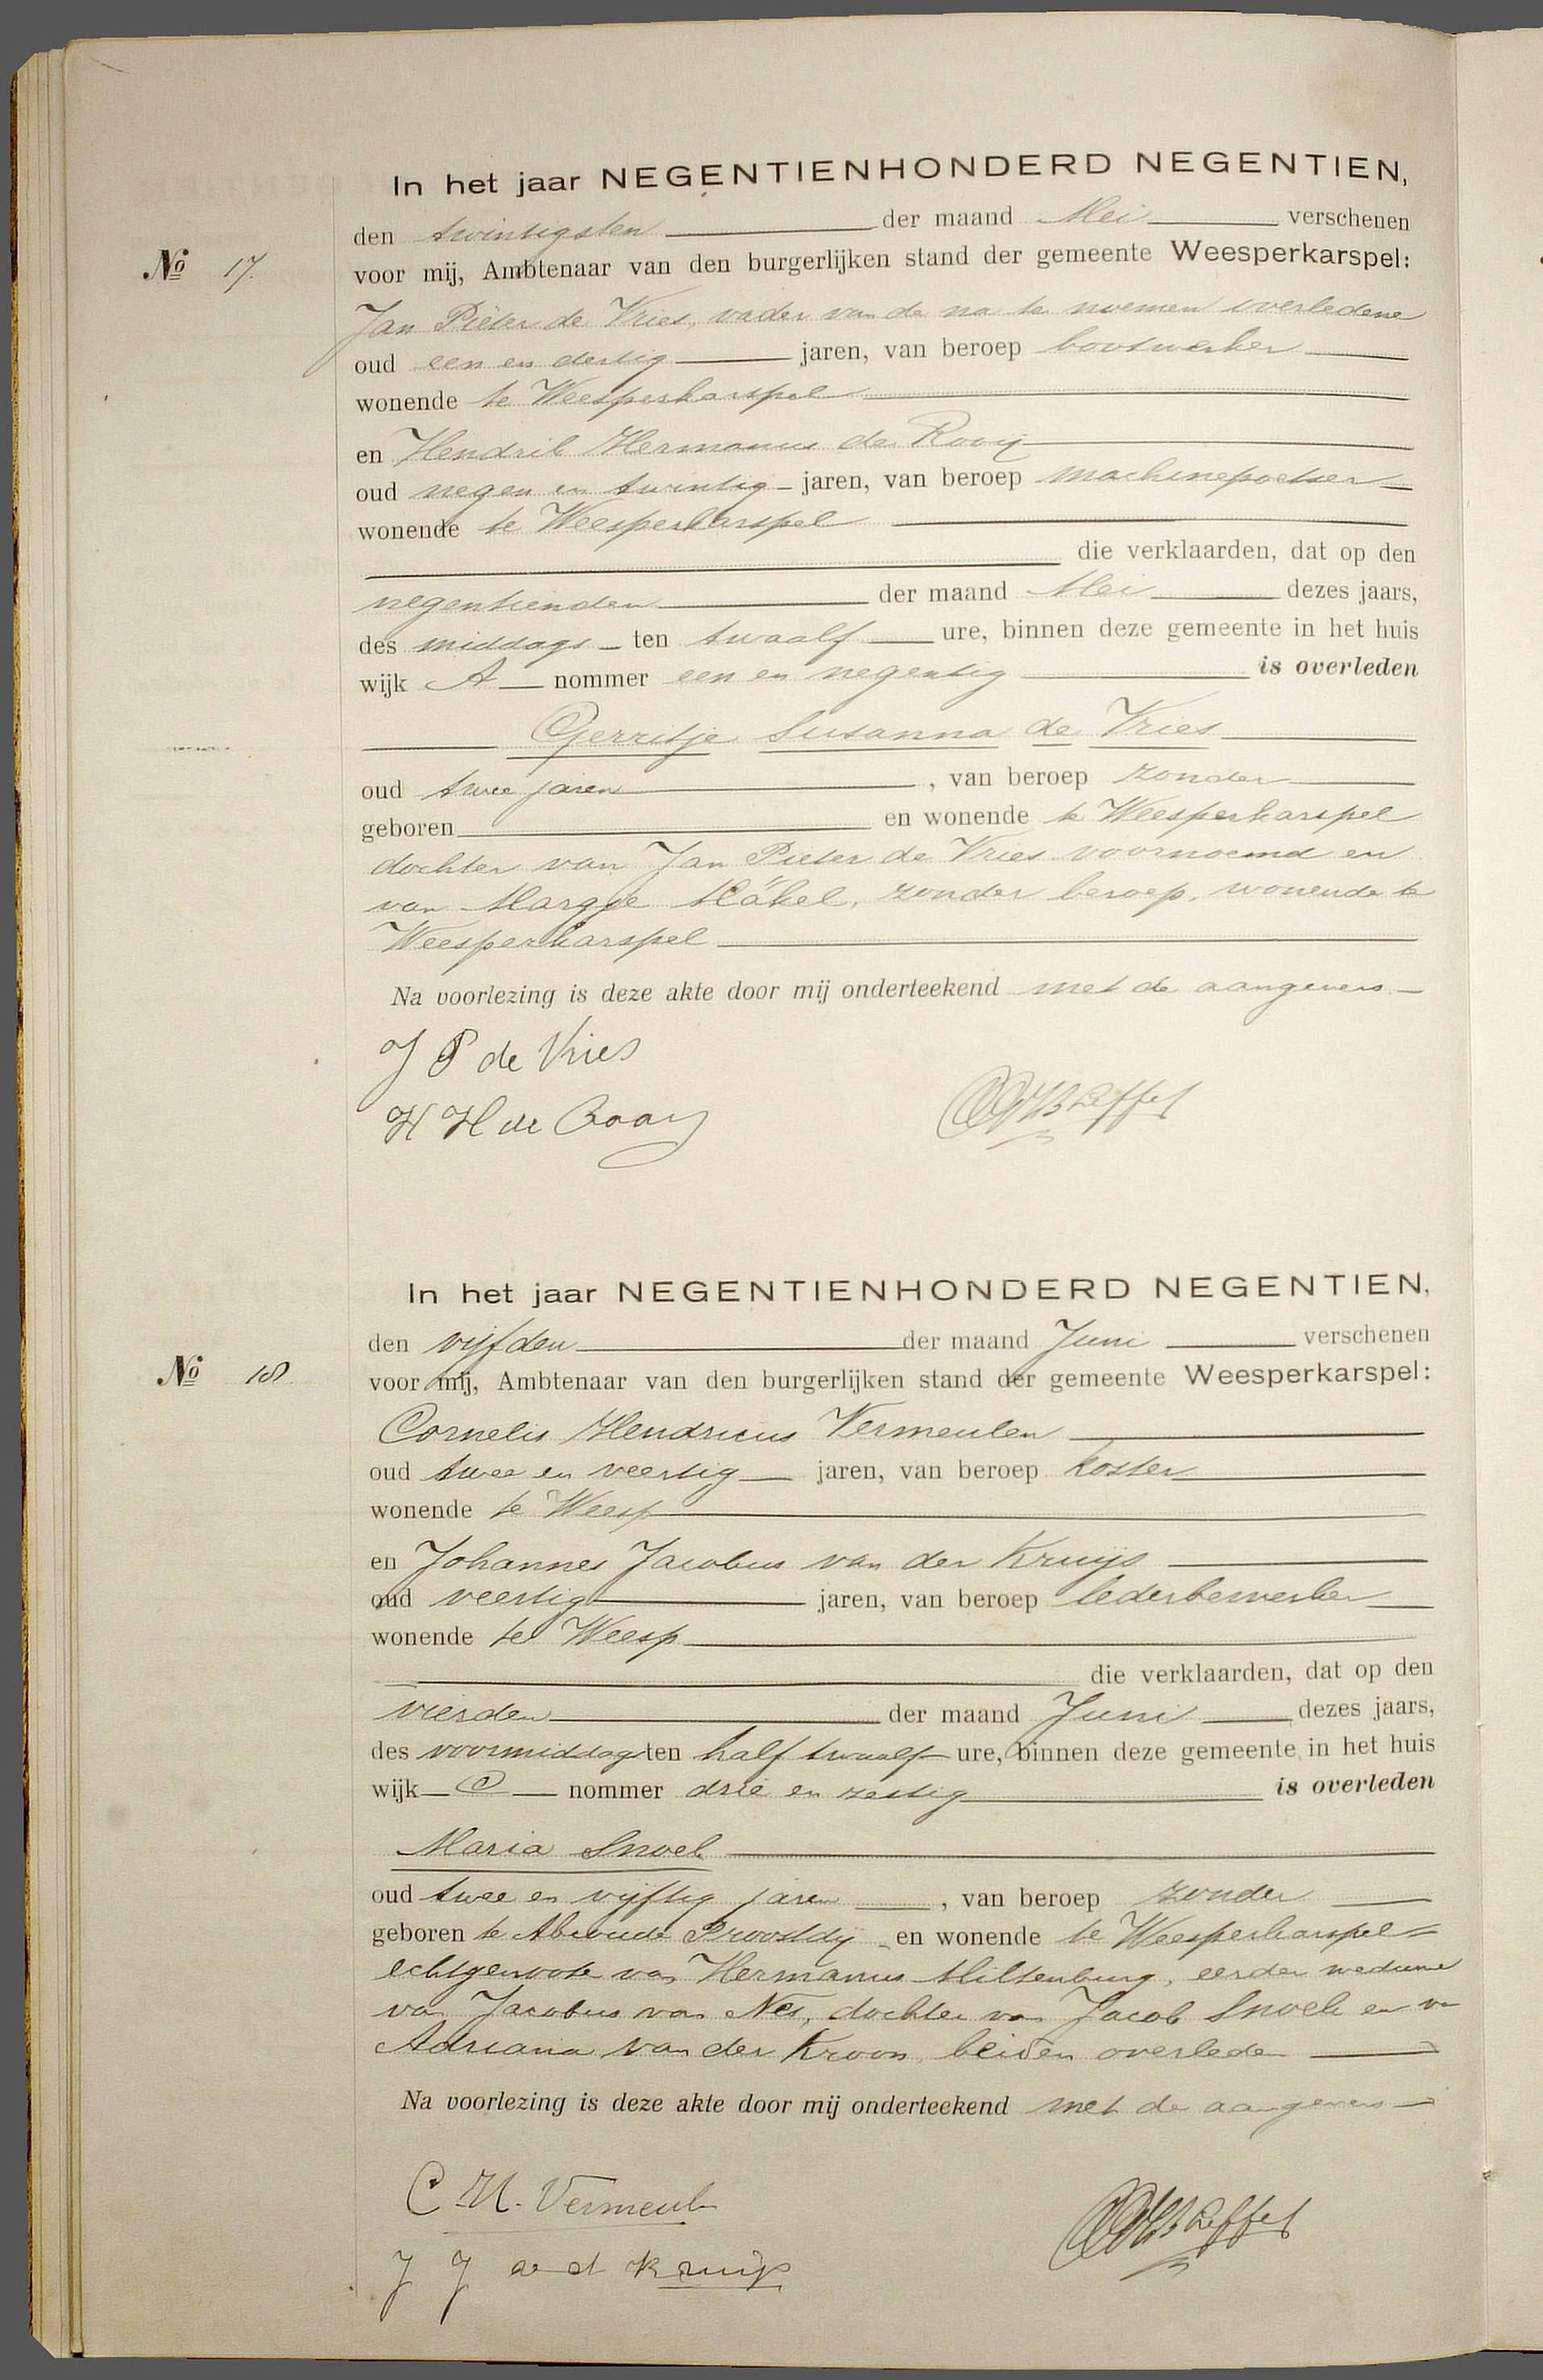 In het jaar NEGENTIENHONDERD NEGENTIEN,
den twintigsten der maand Mei verschenen
No 17.
voor mij, Ambtenaar van den burgerlijken stand der gemeente Weesperkarspel:
Jan Pieter de Vries, vader van de na te noemen overledene
oud een en dertig jaren, van beroep bootwerker
wonende te Weesperkarspel
en Hendrik Hermanus de Rooij
oud negen en twintig jaren, van beroep machinepoetser
wonende te Weesperkarspel
die verklaarden, dat op den
negentienden der maand Mei dezes jaars,
des middags ten twaalf ure, binnen deze gemeente in het huis
wijk A nommer een en negentig is overleden
Gerritje Susanna de Vries
oud twee jaren, van beroep zonder
geboren en wonende te Weesperkarspel
dochter van Jan Pieter de Vries voornoemd en
van Margje Mäkel, zonder beroep, wonende te
Weesperkarspel
Na voorlezing is deze akte door mij onderteekend met de aangevers
J P de Vries
H H de Rooij
In het jaar NEGENTIENHONDERD NEGENTIEN,
den vijfden der maand Juni verschenen
No 18
voor mij, Ambtenaar van den burgerlijken stand der gemeente Weesperkarspel:
Cornelis Hendricus Vermeulen
oud twee en veertig jaren, van beroep koster
wonende te Weesp
en Johannes Jacobus van der Kruijs
oud veertig jaren, van beroep lederbewerker
wonende te Weesp
die verklaarden, dat op den
vierden der maand Juni dezes jaars,
des voormiddags ten half twaalf ure, binnen deze gemeente in het huis
wijk C nommer drie en zestig is overleden
Maria Snoek
oud twee en vijftig jaren, van beroep zonder
geboren te Abcoude Proostdij en wonende te Weesperkarspel
echtgenoote van Hermanus Miltenburg, eerder weduwe
van Jacobus van Nes, dochter van Jacob Snoek en van
Adriana van der Kroon, beiden overleden
Na voorlezing is deze akte door mij onderteekend met de aangevers
C. H. Vermeulen
J J v d Kruijs